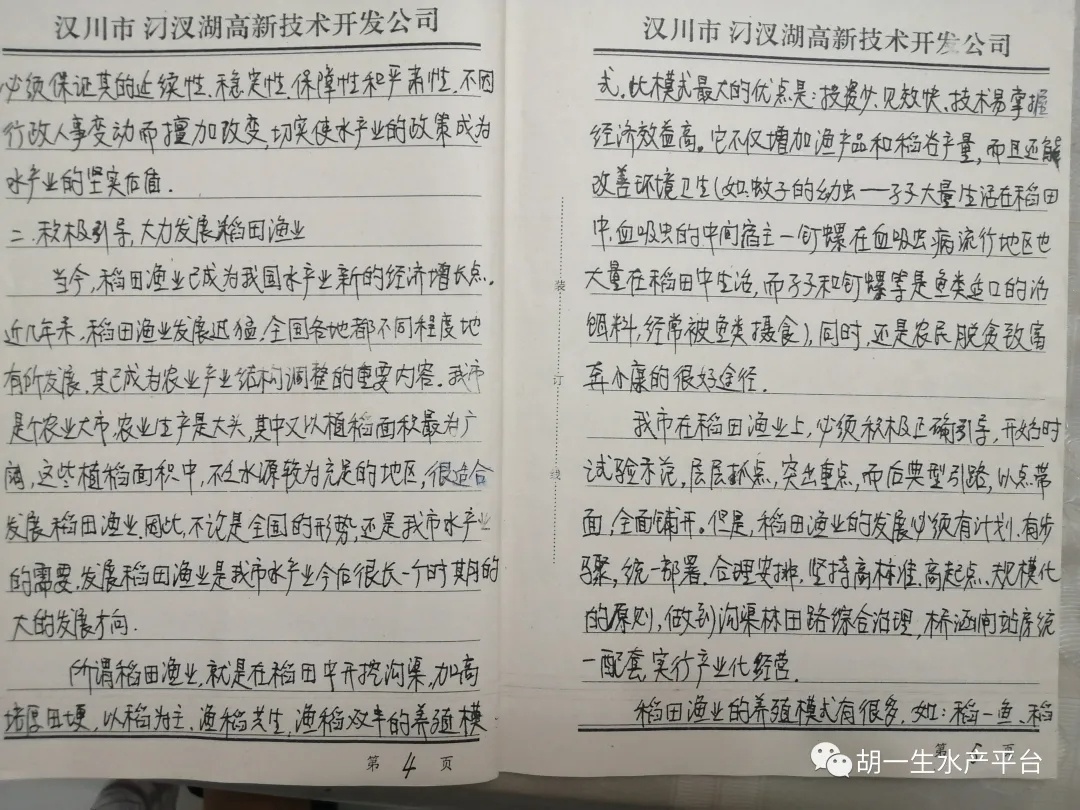 汉川市 汈汊湖高新技术开发公司
必须保证其的连续性、稳定性、保障性和严肃性，不因
行政人事变动而擅加改变，切实使水产业的政策成为
水产业的坚实后盾．
二．积极引导，大力发展稻田渔业
当今，稻田渔业已成为我国水产业新的经济增长点．
近几年来，稻田渔业发展迅猛，全国各地都不同程度地
有所发展．其已成为农业产业结构调整的重要内容．我市
是个农业大市，农业生产是大头，其中又以植稻面积最为广
阔，这些植稻面积中，不乏水源较为充足的地区，很适合
发展稻田渔业．因此，不论是全国的形势，还是我市水产业
的需要，发展稻田渔业是我市水产业今后很长一个时期的
大的发展方向．
所谓稻田渔业，就是在稻田中开挖沟渠，加高
培厚田埂，以稻为主，渔稻共生，渔稻双丰的养殖模
第 4 页
装
订
线
汉川市 汈汊湖高新技术开发公司
式。此模式最大的优点是：投资少、见效快、技术易掌握
经济效益高。它不仅增加渔产品和稻谷产量，而且还能
改善环境卫生（如：蚊子的幼虫——孑孓大量生活在稻田
中，血吸虫的中间宿主—钉螺在血吸虫病流行地区也
大量在稻田中生活，而孑孓和钉螺等是鱼类适口的活
饵料，经常被鱼类摄食），同时，还是农民脱贫致富
奔小康的很好途径．
我市在稻田渔业上，必须积极正确引导，开始时
试验示范，层层抓点，突出重点，而后典型引路，以点带
面，全面铺开。但是，稻田渔业的发展必须有计划、有步
骤，统一部署，合理安排，坚持高标准、高起点、规模化
的原则，做到沟渠林田路综合治理，桥涵闸站房统
一配套，实行产业化经营．
稻田渔业的养殖模式有很多，如：稻—鱼、稻
第 5 页
胡一生水产平台